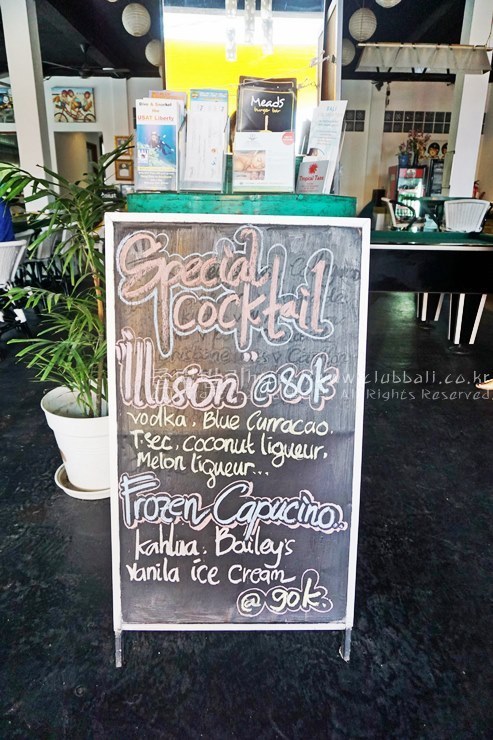 Blue & Snorkel
USAT Liberty
Meads
burger bar
BALI
Tropical
Special
cocktail
"illusion" @80k
www.clubbali.co.kr
All Rights Reserved.
vodka. Blue Curracao.
T.sec, coconut ligueur,
Melon ligueur...
Frozen Capucino..
kahlua. Bailey's
vanila ice cream
@ 90k.